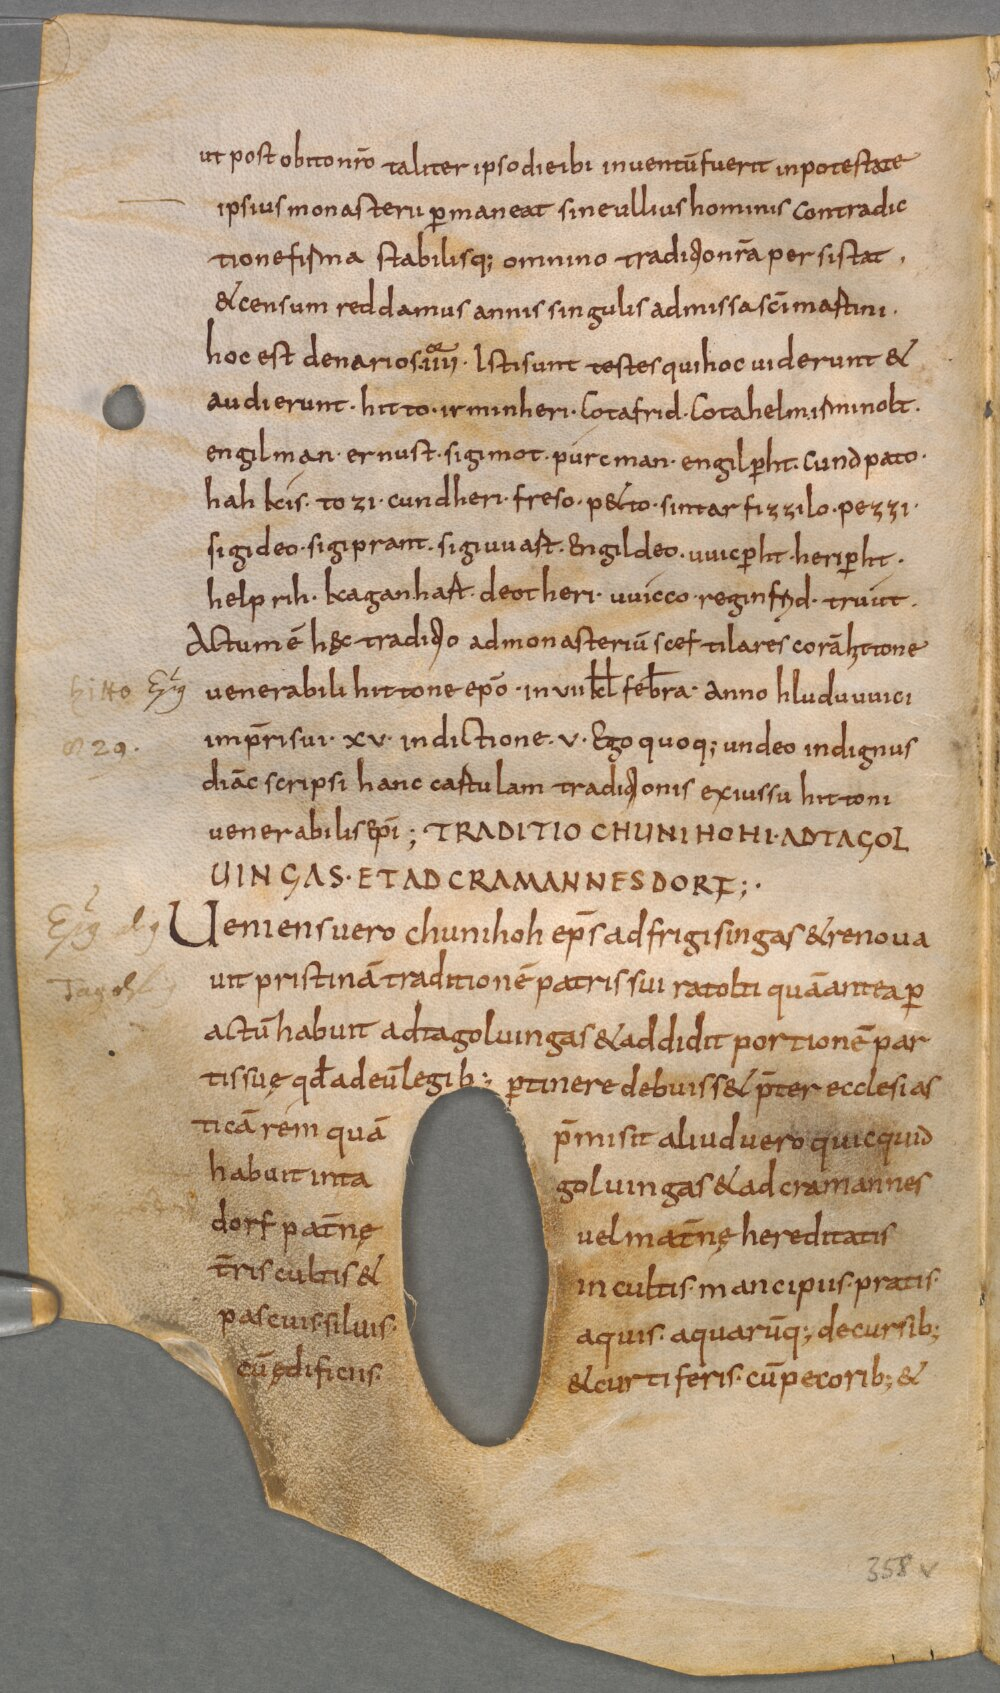 ut post obitonr̄o taliter ipso die ibi inventū fuerit in potestate
ipsius monasterii ꝑmaneat sine ullius hominis contradic
tione firma stabilisq; omnino tradic̄o nr̄a persistat.
&censum reddamus annis singulis ad missa sc̄i martini.
hoc est denarios .iiii. Isti sunt testes qui hoc uiderunt &
audierunt. hitto. irminheri. Cotafrid. Cotahelm. irminolt.
engilman. ernust. sigimot. purcman. engilꝑht. cundpato.
hahkis. tozi. cundheri. freso. p&to. sintar fizzilo. pezzi.
sigideo. sigiprant. sigiuuart. Engildeo. uuicꝑht. heriꝑht.
helprih. kaganhart. deotheri. uuicco. reginfrid. truut.
Actum ē hęc tradic̄o ad monasteriū sceftilares corā hittone
hitto
uenerabili hittone ep̄o. in uii kł febr̄a. Anno hluduuuici
829.
imp̄ri sui. xv. indictione. v. Ego quoq; undeo indignus
diāc scripsi hanc cartulam tradic̄onis ex iussu hittoni
uenerabilis ep̄i; TRADITIO CHUNIHOHI. AD TAGOL
UINGAS. ET AD CRAMANNESDORF;.
Ueniens uero chunihoh ep̄s ad frigisingas & renoua
uit pristinā traditionē patris sui ratolti quā antea ꝑ
actū habuit ad tagoluingas & addidit portionē par
tis suę qđ ad eū legib; ꝑtinere debuiss& p̄ter ecclesias
ticā rem quā p̄misit aliud uero quicquid
habuit in ta goluingas & ad cramannes
dorf pat̄nę uel mat̄nę hereditatis
t̄ris cultis & in cultis. mancipiis. pratis.
pascuis. siluis. aquis. aquarūq; decursib;
cū ędificiis. & curtiferis. cū pecorib; &
358 v